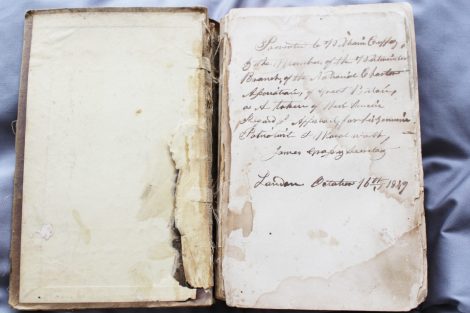 Presented to Wilham Cuffay, a
Member of the Westminster
Branch, of the National Charter
Association, of Great Britain,
as A token of their Sincere
Regard & Affection, for his Genuine
Patriotism & Moral worth.
James Grassby Secretary
London October 16th 1849